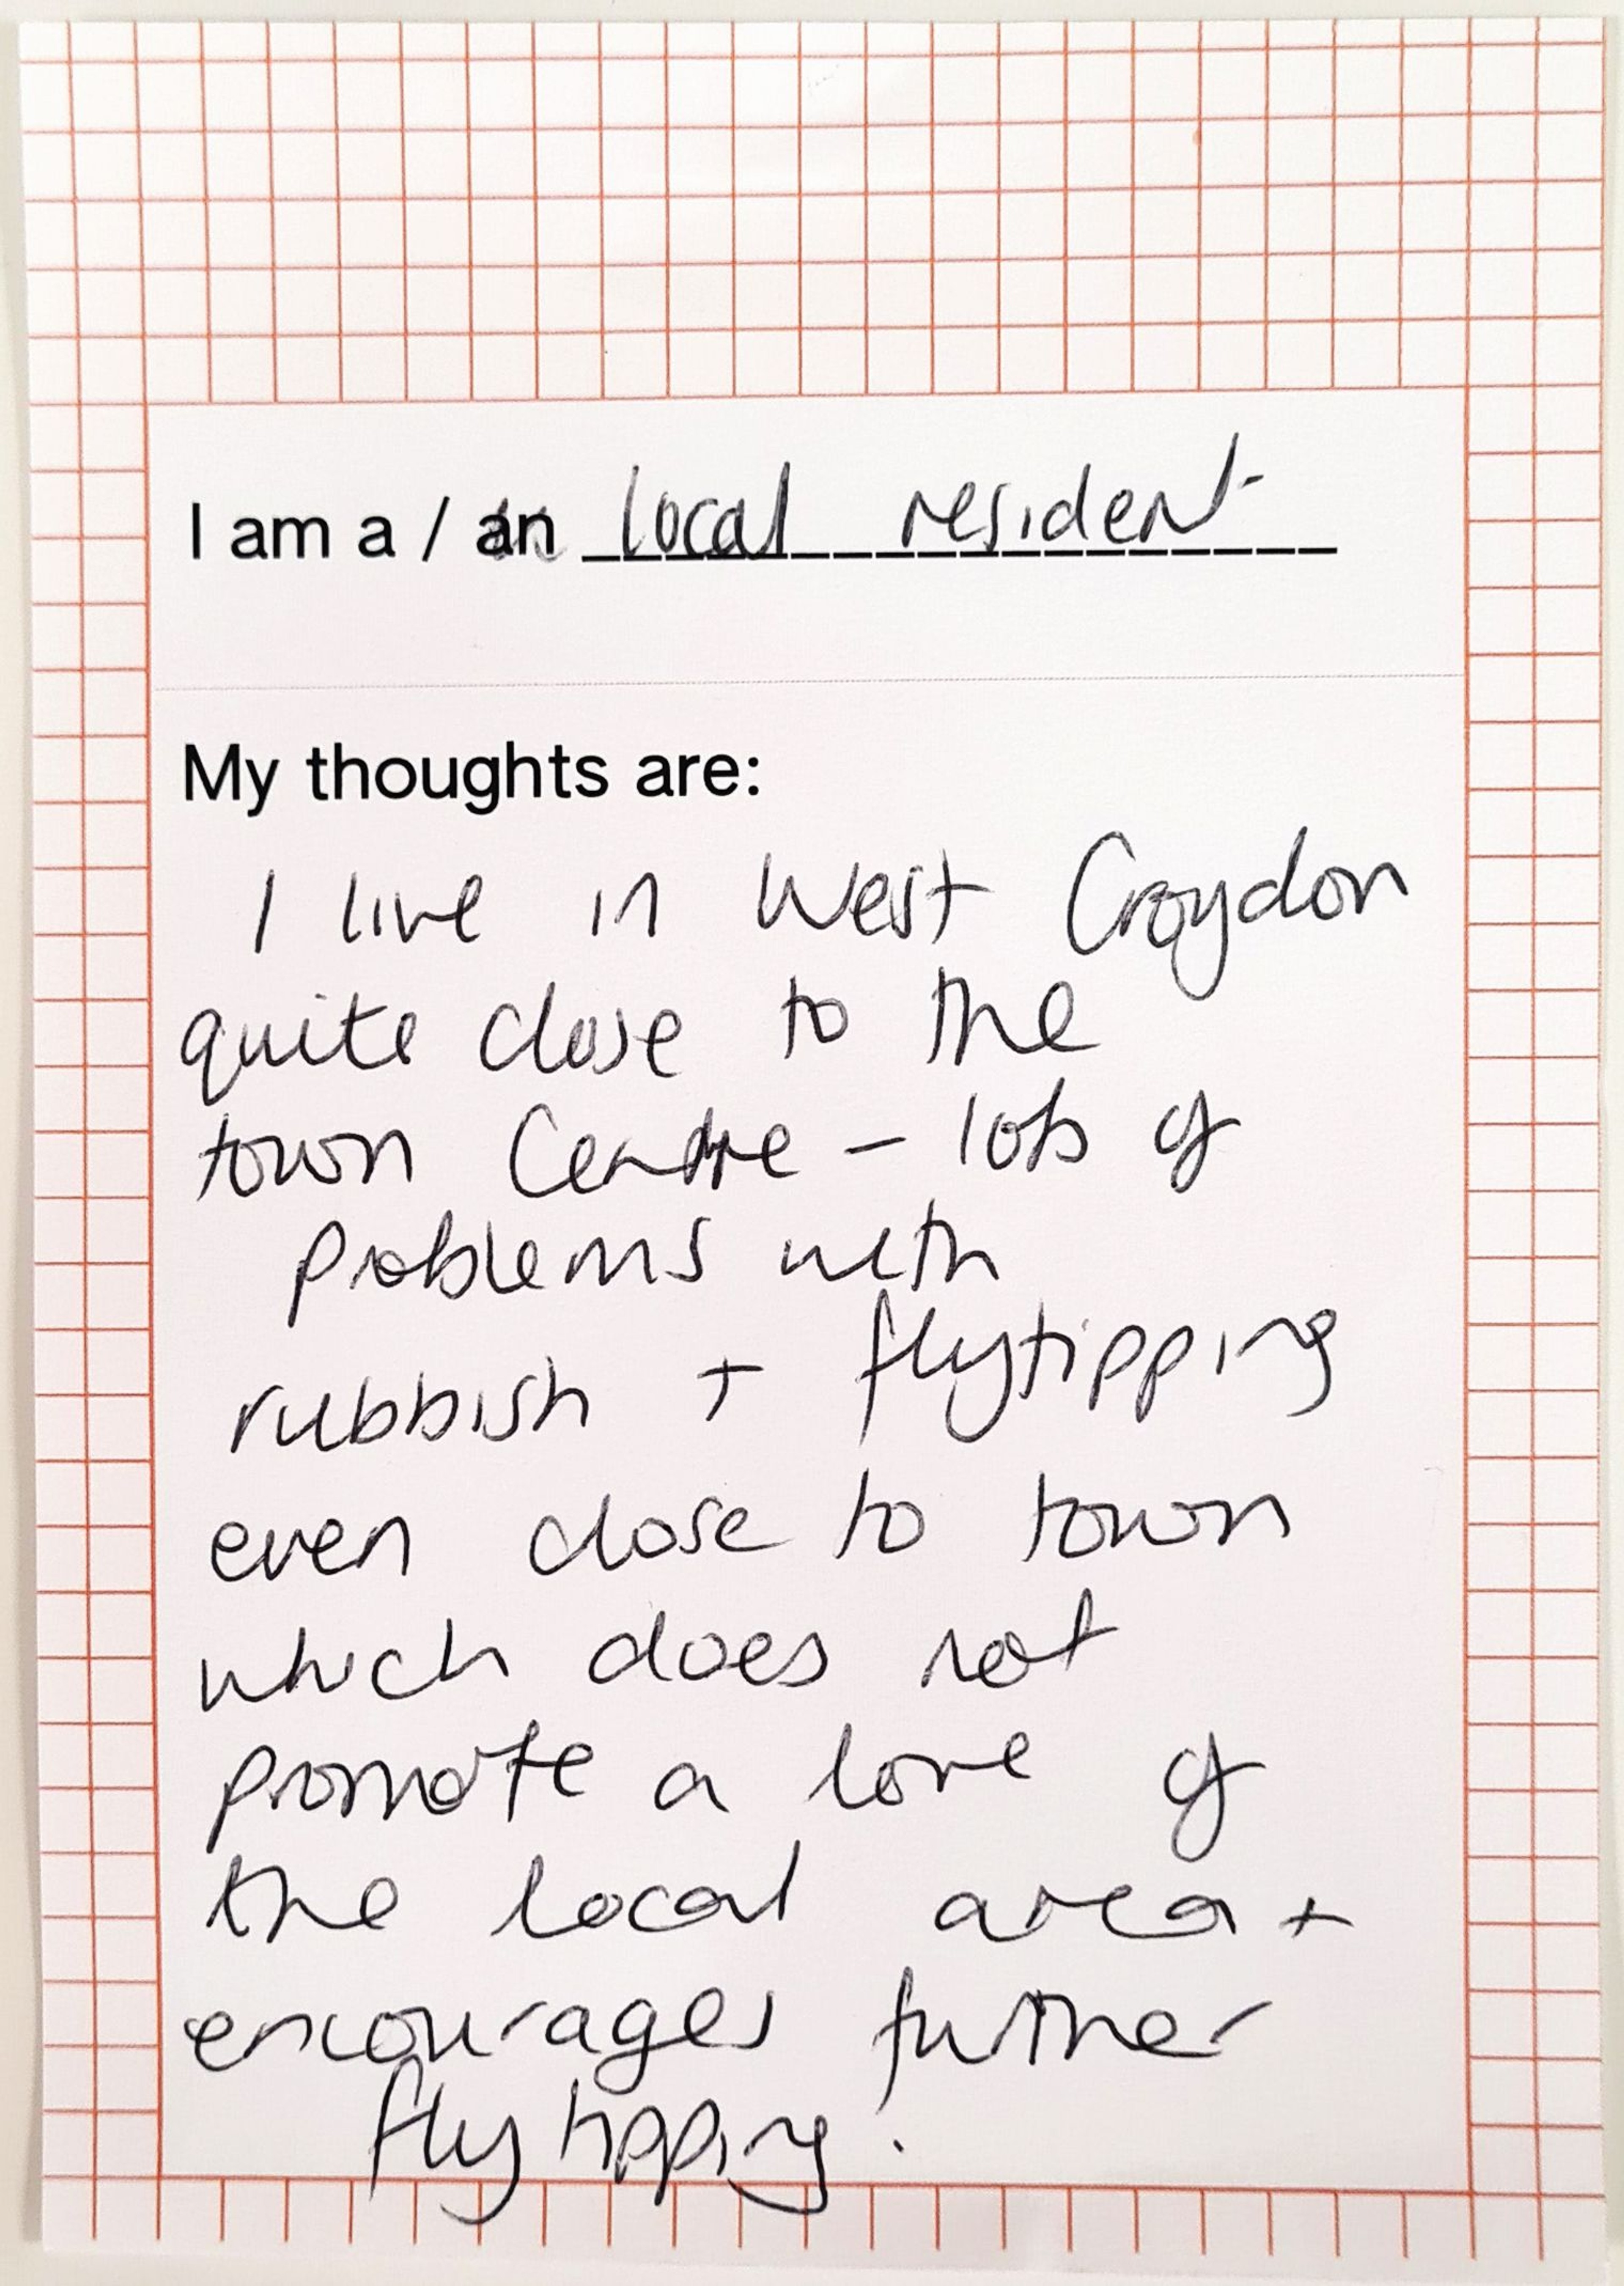 I am a / an local resident
My thoughts are:
I live in West Croydon
quite close to the
town Centre - lots of
problems with
rubbish + flytipping
even close to town
which does not
promote a love of
the local area +
encourages further
flytipping.